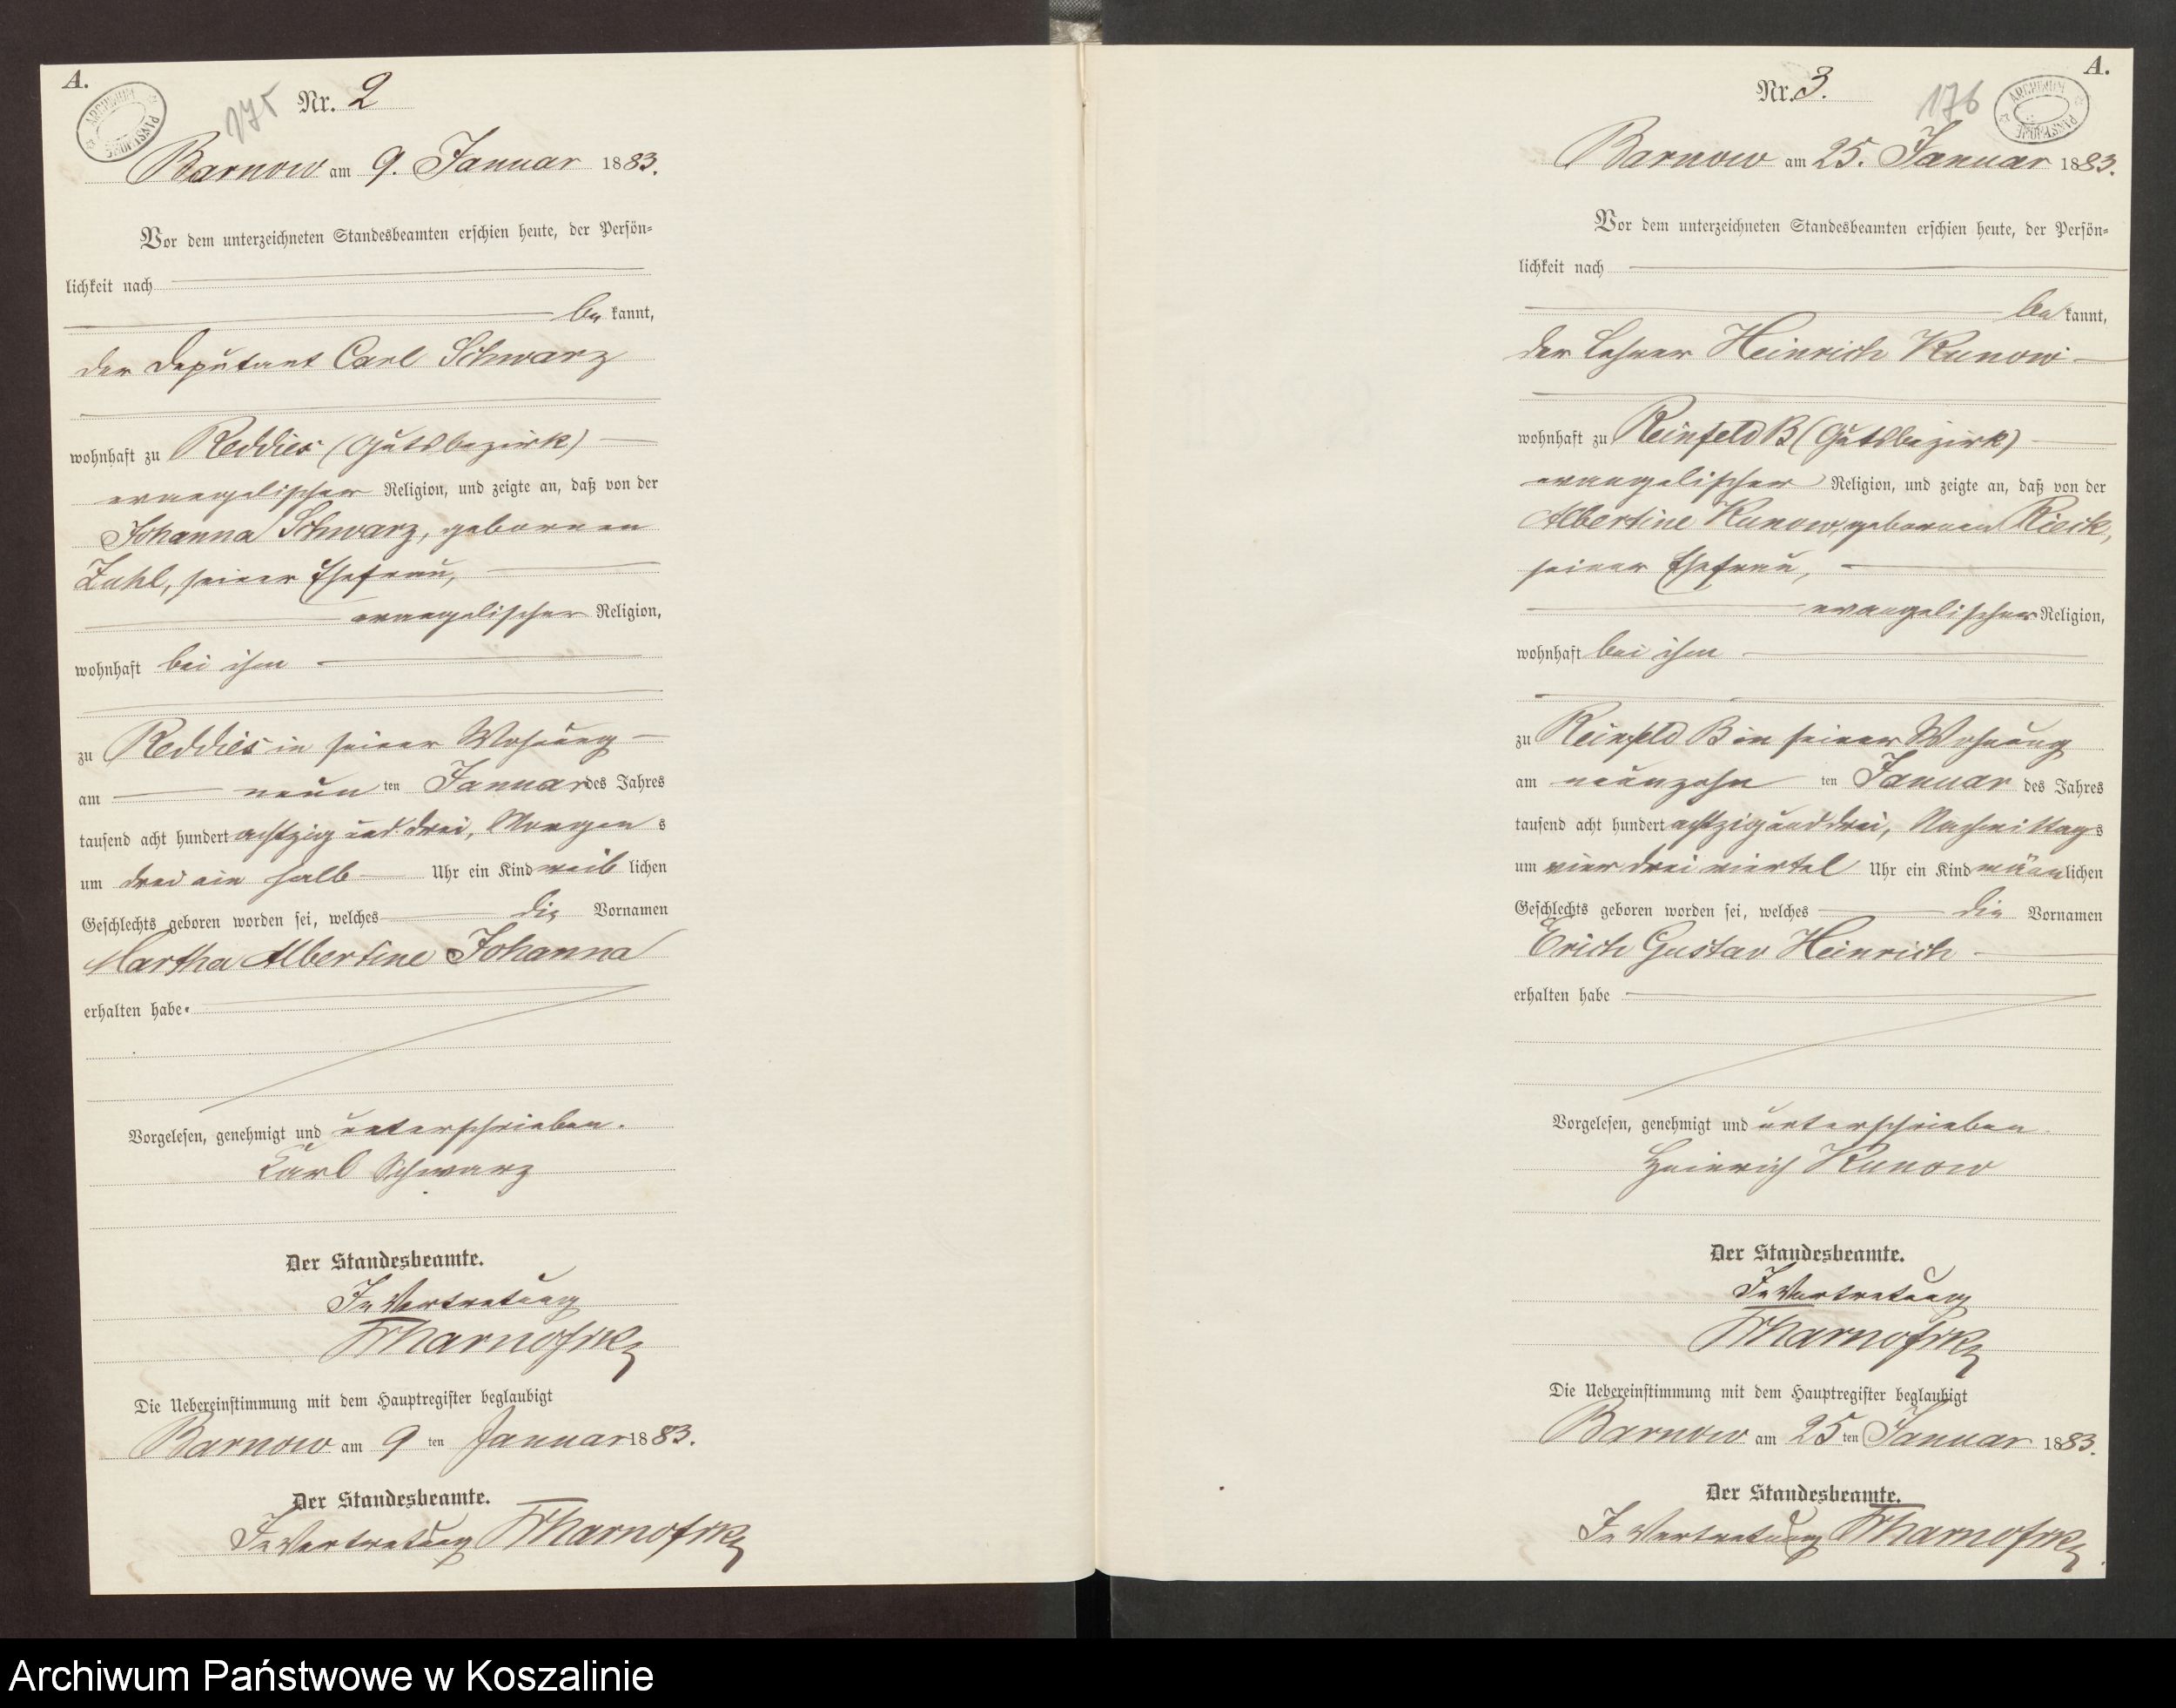 A.
ARCHIWUM PAŃSTWOWE
175
Nr. 2
Barnow am 9. Januar 1883.
Vor dem unterzeichneten Standesbeamten erschien heute, der Persön-
lichkeit nach
be kannt,
der Deputant Carl Schwarz
wohnhaft zu Reddies (Gutsbezirk)
evangelischer Religion, und zeigte an, daß von der
Johanna Schwarz, geborenen
Zuhl, seiner Ehefrau,
evangelischer Religion,
wohnhaft bei ihm
zu Reddies in seiner Wohnung
am neun ten Januar des Jahres
tausend acht hundert achtzig und drei, Morgen s
um drei ein halb Uhr ein Kind weib lichen
Geschlechts geboren worden sei, welches die Vornamen
Martha Albertine Johanna
erhalten habe.
Vorgelesen, genehmigt und unterschrieben.
Karl Schwarz
Der Standesbeamte.
In Vertretung
Die Uebereinstimmung mit dem Hauptregister beglaubigt
Barnow am 9 ten Januar 1883.
Der Standesbeamte.
In Vertretung
A.
ARCHIWUM PAŃSTWOWE
176
Nr. 3.
Barnow am 25. Januar 1883.
Vor dem unterzeichneten Standesbeamten erschien heute, der Persön-
lichkeit nach
be kannt,
der Lehrer Heinrich Kunow
wohnhaft zu Reinfeld B (Gutsbezirk)
evangelischer Religion, und zeigte an, daß von der
Albertine Kunow, geborenen Rieck,
seiner Ehefrau,
evangelischer Religion,
wohnhaft bei ihm
zu Reinfeld B in seiner Wohnung
am neunzehn ten Januar des Jahres
tausend acht hundert achtzig und drei, Nachmittag s
um vier drei viertel Uhr ein Kind männ lichen
Geschlechts geboren worden sei, welches die Vornamen
Erich Gustav Heinrich
erhalten habe
Vorgelesen, genehmigt und unterschrieben.
Heinrich Kunow
Der Standesbeamte.
In Vertretung
Die Uebereinstimmung mit dem Hauptregister beglaubigt
Barnow am 25 ten Januar 1883.
Der Standesbeamte.
In Vertretung
Archiwum Państwowe w Koszalinie